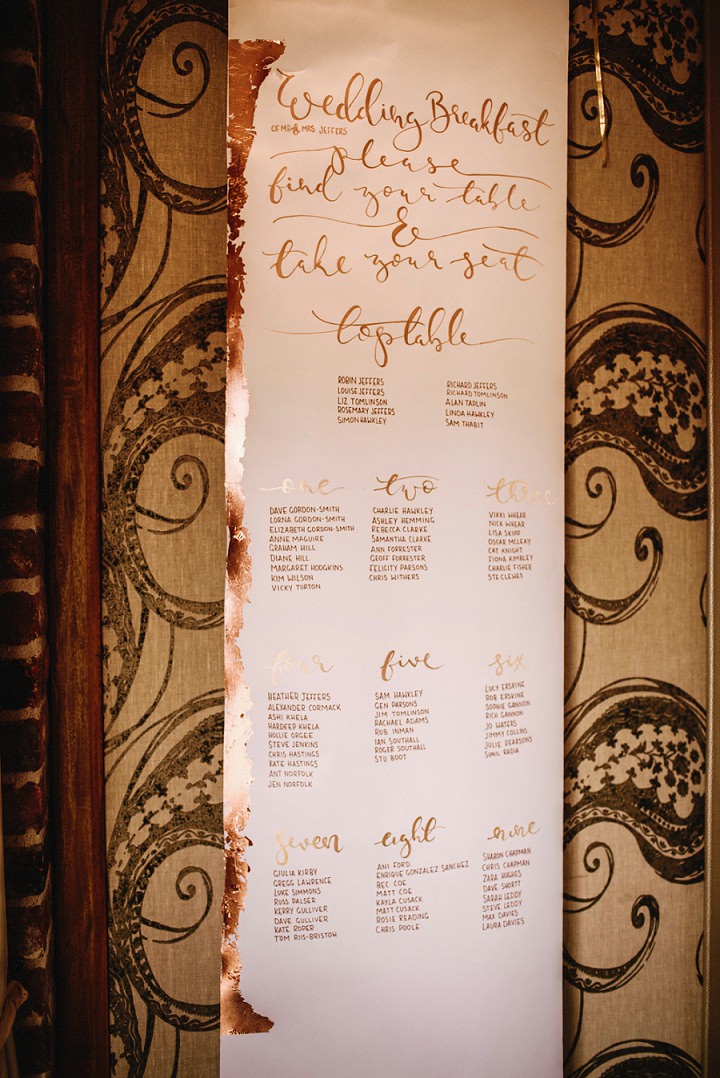 Wedding Breakfast
OF MR & MRS JEFFERS
please
find your table
&
take your seat
top table
ROBIN JEFFERS
LOUISE JEFFERS
LIZ TOMLINSON
ROSEMARY JEFFERS
SIMON HAWKLEY
RICHARD JEFFERS
RICHARD TOMLINSON
ALAN TADLIN
LINDA HAWKLEY
SAM THABIT
one
DAVE GORDON-SMITH
LORNA GORDON-SMITH
ELIZABETH GORDON-SMITH
ANNE MAGUIRE
GRAHAM HILL
DIANE HILL
MARGARET HODGKINS
KIM WILSON
VICKY TORTON
two
CHARLIE HAWKLEY
ASHLEY HEMMING
REBECCA CLARKE
SAMANTHA CLARKE
ANN FORRESTER
GEOFF FORRESTER
FELICITY PARSONS
CHRIS WITHERS
three
VIKKI WHEAR
NICK WHEAR
LISA SKIPP
OSCAR MCLEAY
CAT KNIGHT
FIONA KIMBLEY
CHARLIE FISHER
STE CLEWES
four
HEATHER JEFFERS
ALEXANDER CORMACK
ASHI KHELA
HARDEEP KHELA
HOLLIE ORGEE
STEVE JENKINS
CHRIS HASTINGS
KATE HASTINGS
ANT NORFOLK
JEN NORFOLK
five
SAM HAWKLEY
GEN PARSONS
JIM TOMLINSON
RACHAEL ADAMS
ROB INMAN
IAN SOUTHALL
ROGER SOUTHALL
STU BOOT
six
LUCY ERSKINE
ROB ERSKINE
SOPHIE GANNON
RICK GANNON
JO WATERS
JIMMY COLLINS
JULIE PEARSONS
SUNIL RADIA
seven
GIULIA KIRBY
GREGG LAWRENCE
LUKE SIMMONS
RUSS PALSER
KERRY GULLIVER
DAVE GULLIVER
KATE ROPER
TOM RIIS-BRISTOW
eight
ANI FORD
ENRIQUE GONZALEZ SANCHEZ
BEC COE
MATT COE
KAYLA CUSACK
MATT CUSACK
ROSIE READING
CHRIS POOLE
nine
SHARON CHAPMAN
CHRIS CHAPMAN
ZARA HUGHES
DAVE SHORTT
SARAH LEDDY
STEVE LEDDY
MAX DAVIES
LAURA DAVIES